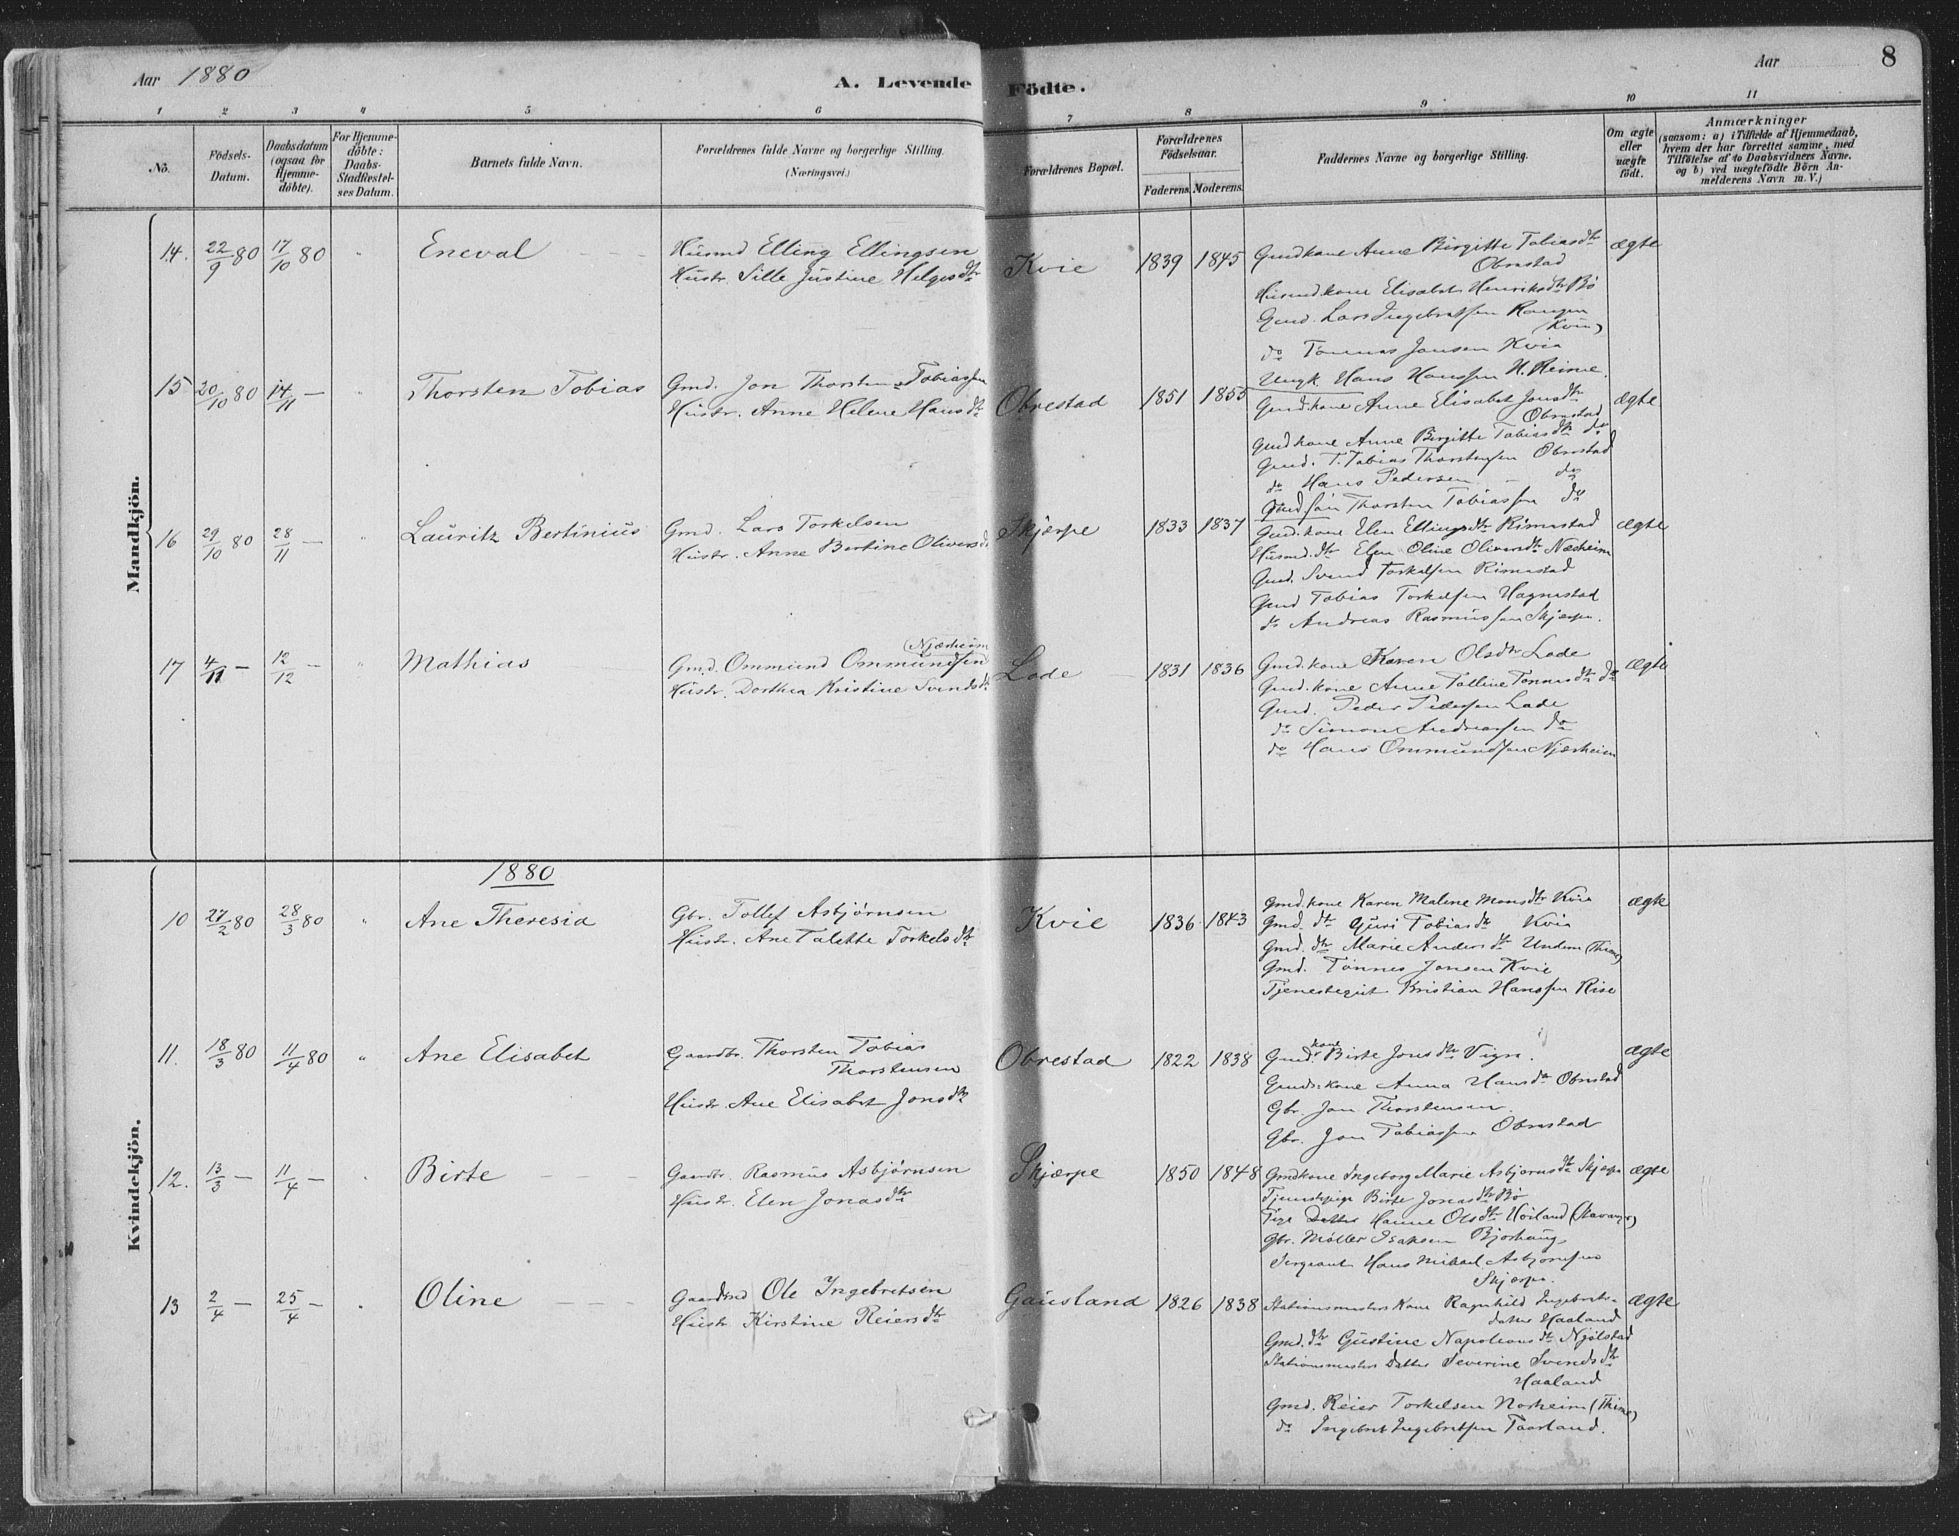 Aar 1880
A. Levende Fødte.
Aar
8
1 2 3 4 5 6 7 8 9 10 11
No.
Födsels-Datum.
Daabsdatum (ogsaa for Hjemme-döbte).
For Hjemme-döbte: Daabs-Stadfæstel-ses Datum.
Barnets fulde Navn.
Forældrenes fulde Navne og borgerlige Stilling. (Næringsvei.)
Forældrenes Bopæl.
Forældrenes Födselsaar.
Faderens. Moderens.
Faddernes Navne og borgerlige Stilling.
Om ægte eller uægte födt.
Anmærkninger
(saasom: a) i Tilfælde af Hjemmedaab,
hvem der har forrettet samme, med
Tilføielse af to Daabsvidners Navne,
og b) ved uægtefödte Börn An-
melderens Navn m. V.)
Mandkjön.
14. 22/9 80 17/10 80 " Eneval
Husmd Elling Ellingsen
Hustr. Sille Justine Helgesdtr
Kvie 1839 1845
Gmdkone Anne Birgitte Tobiasdtr
Obrestad
Husmd.kone Elisabet Henriksdtr Bø
Gmd. Lars Ingebretsen Haugen
(Kvie)
do Tønnes Jonsen Kvia
Ungk. Hans Hanssen H. Reime.
ægte
15 20/10 80 14/11 — " Thorsten Tobias
Gmd. Jon Thorsten Tobiassen
Hustr. Anne Helene Hansdtr
Obrestad 1851 1855
Gmd.kone Anne Elisabet Jonsdtr
Obrestad
Gmdkone Anne Birgitte Tobiasdtr do
Gmd. T. Tobias Thorstensen Obrestad
do Hans Pedersen - do
Gmdsøn Thorsten Tobiassen do
ægte
16 29/10 80 28/11 — " Lauritz Bertinius
Gmd. Lars Torkelsen
Hustr. Anne Bertine Olivers d.
Skjærpe 1833 1837
Gmd.kone Elen Ellingsdtr Rimestad
Husmd.dtr Elen Oline Oliversdtr Næsheim
Gmd. Svend Torkelsen Rimestad
Gmd Tobias Torkelsen Hognestad
do Andreas Rasmussen Skjærpe.
ægte
17 4/11 — 12/12 — " Mathias
(Njærheim
Gmd. Ommund Ommundsen
Hustr. Dorthea Kristine Svendsdtr
Lode 1831 1836
Gmd.kone Karen Olsdtr Lode
Gmd.kone Anne Talline Tønnesdtr do
Gmd. Peder Pedersen Lode
do Simon Andreassen do
do Hans Ommundsen Njærheim
ægte
Kvindekjön.
1880
10 27/2 80 28/3 80 " Ane Theresia
Gbr. Tollef Asbjørnsen
Hustr. Ane Talette Torkelsdtr
Kvie 1836 1843
Gmd.kone Karen Malene Monsdtr Kvie
Gmd. dtr Guri Tobiasdtr Kvie
Gmd. dtr Marie Andersdtr Undem (Thime)
Gmd. Tønnes Jonsen Kvie
Tjenestegut Kristian Hanssen Rise
ægte
11. 18/3 80 11/4 80 " Ane Elisabet
Gaardbr. Thorsten Tobias
Thorstensen
Hustr. Ane Elisabet Jonsdtr
Obrestad 1822 1838
Gmd.kone Birte Jonsdtr Vigre.
Gmds.kone Anna Hansdtr Obrestad
Gbr. Jon Thorstensen.
Gbr. Jon Tobiassen Obrestad
ægte
12. 13/3 — 11/4 — " Birte
Gaardbr. Rasmus Asbjørnsen
Hustr. Elen Jonasdtr
Skjærpe 1850 1848
Gmdkone Ingeborg Marie Asbjørnsdtr Skjærpe
Tjenestepige Birte Jonasdtr Bø
Pige Datter Hanne Olsdtr Høiland (Stavanger)
Gbr. Møller Isaksen Bjorhaug
Sergeant Hans Mikael Asbjørnsen
Skjærpe.
ægte
13 2/4 — 25/4 — " Oline
Gaardmd Ole Ingebretsen
Hustr Kirstine Reiersdtr
Gausland 1826 1838
Stationsmesters Kone Ragnhild Ingebrets-
datter Haaland
Gmd. dtr Gustine Napoleonsdtr Njølstad
Stationsmesters Datter Severine Svendsdtr
Haaland
Gmd. Reier Torkelsen Norheim (Thime)
do Ingebret Ingebretsen Taarland.
ægte